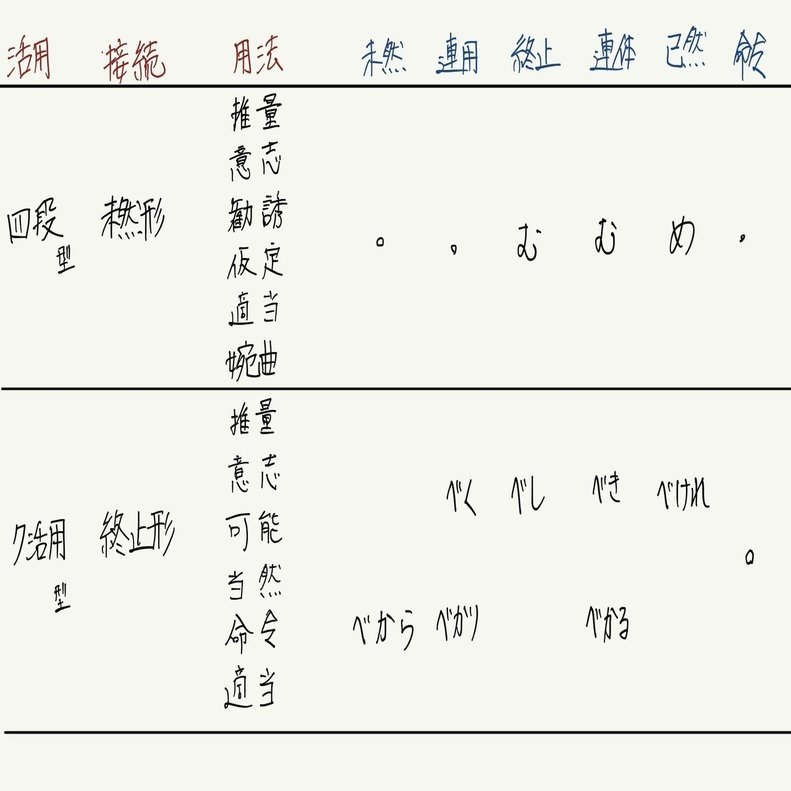 活用 接続 用法 未然 連用 終止 連体 已然 命令
推量
意志
勧誘
四段型 未然形 。 。 む む め 。
仮定
適当
婉曲
推量
意志
べく べし べき べけれ
可能
ク活用型 終止形 。
当然
命令
べから べかり べかる
適当